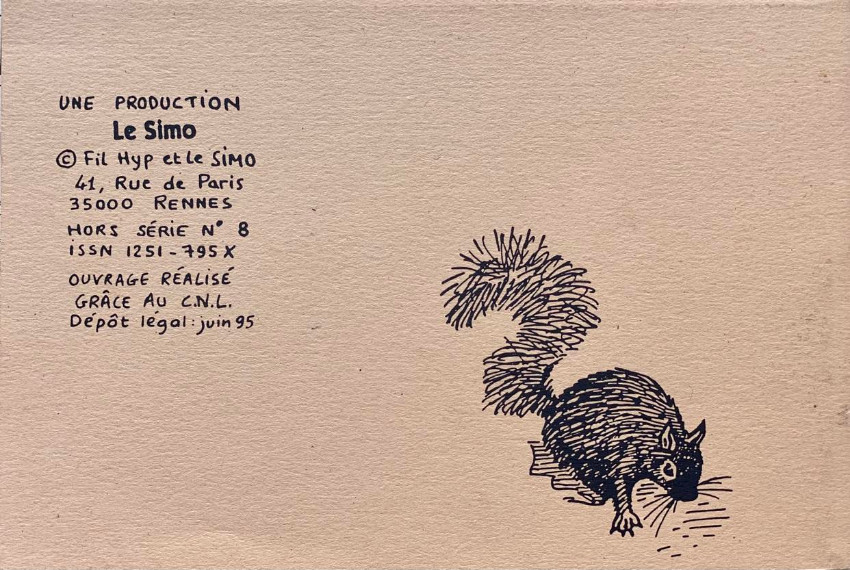 UNE PRODUCTION
Le Simo
© Fil Hyp et Le SiMO
41, Rue de Paris
35000 RENNES
HORS SÉRIE N° 8
ISSN 1251-795X
OUVRAGE RÉALISÉ
GRÂCE AU C.N.L.
Dépôt légal: juin 95